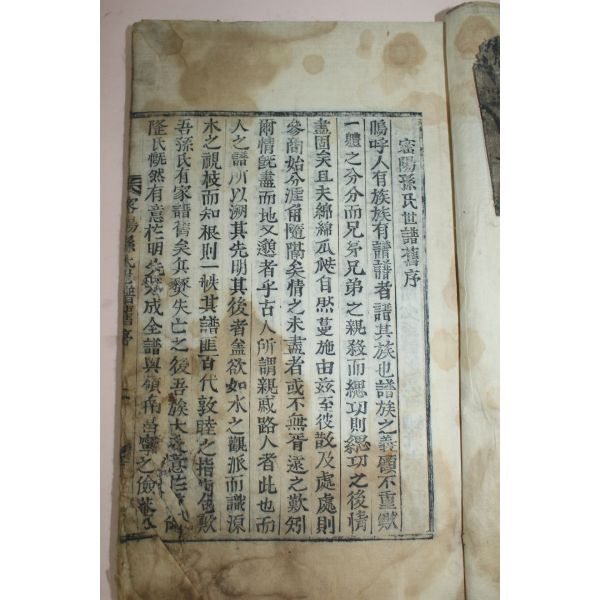 密陽孫氏世譜舊序
嗚呼人有族族有譜譜者譜其族也譜族之義顧不重歟
一體之分分而兄弟兄弟之親殺而緦功則緦功之後情
盡固矣且夫綿綿瓜瓞自然蔓施由玆至彼散及處處則
參商始分涯角隨隔矣情之未盡者或不無胥遠之歎矧
爾情旣盡而地又邈者乎古人所謂親戚路人者此也而
人之譜所以溯其先明其後者盖欲如水之觀派而識源
木之視枝而知根則一帙其譜匪百代敦睦之指南也歟
吾孫氏有家譜舊矣兵燹失亡之後吾族大
隆氏慨然有意於明 成全譜與嶺南 寧之儉
密陽孫氏世譜舊序